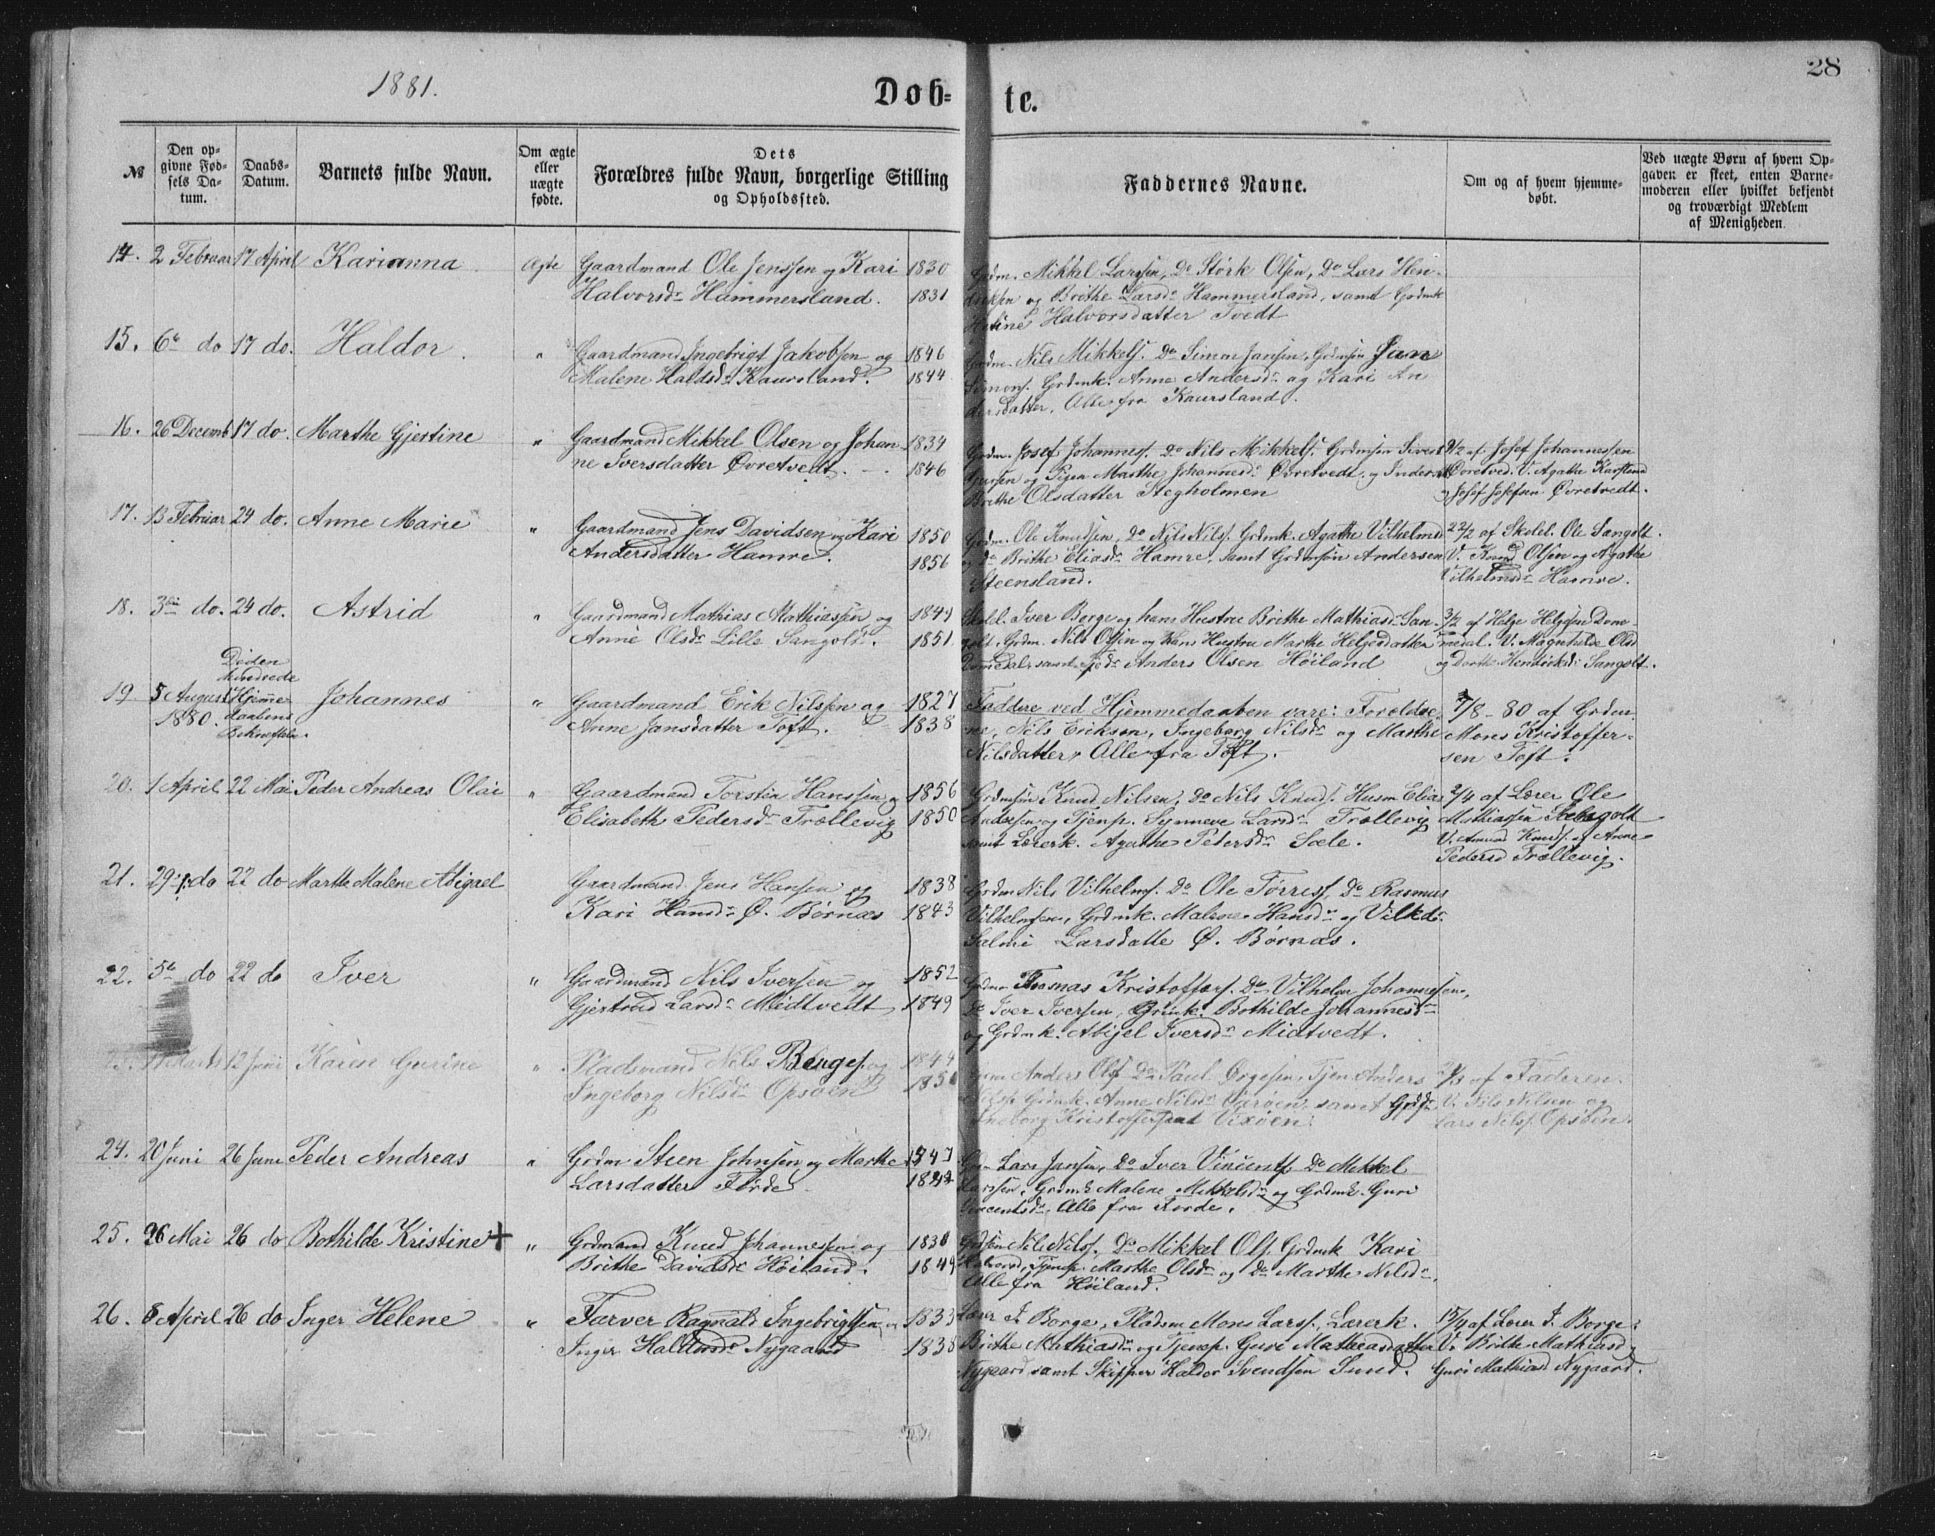 28
1881.
Døb= te.
№
Den op-
givne Fød-
sels Da-
tum.
Daabs-
Datum.
Barnets fulde Navn.
Om ægte
eller
uægte
fødte.
Dets
Forældres fulde Navn, borgerlige Stilling
og Opholdssted.
Faddernes Navne.
Om og af hvem hjemme-
døbt.
Ved uægte Børn af hvem Op-
gaven er skeet, enten Barne-
moderen eller hvilket bekjendt
og troværdigt Medlem
af Menigheden.
14. 2 Februar 17 April Karianna Ægte Gaardmand Ole Jenssen og Kari 1830
Halvorsdr Hammersland. 1831
Grdm. Mikkel Larssen, Do Størk Olsen, Do Lars Hen-
og Brithe Larsdr Hammersland, samt Grdmk
Halvorsdatter Tvedt
15. 6te do 17 do. Haldor. " Gaardmand Ingebrigt Jakobsen og 1846
Malene Haldsdr Kaursland. 1844
Grdm. Nils Mikkels. Do Simon Jansen, Grdmsøn Jan
Simons. Grdmk. Anne Andersdr og Kari An
dersdatter, Alle fra Kaursland.
16. 26 Decemb. 17 do. Marthe Gjertine " Gaardmand Mikkel Olsen og Johan- 1834
ne Iversdatter Øvretvedt. 1846
Grdm. Josef Johannes. Do Nils Mikkels. Grdmsøn Sivert
og Pigen Marthe Johannesdr Øvretvedt og
Brithe Olsdatter Stegholmen
9/2 af Josef Johannessen
Øvretved. V. Agathe Karstensd
og Josef Josefsen Øvretvedt.
17. 13 Februar 24 do. Anne Marie " Gaardmand Jens Davidsen og Kari 1850
Andersdatter Hamre. 1856
Grdm. Ole Knudsen, Do Nils Nils. Grdmk. Agathe Vilhelmsd
og do Brithe Eliasdr Hamre, samt Grdmsøn Andersen
Steensland.
22/2 af Skolel. Ole Sangolt.
V. Knud Olsen og Agathe
Vilhelmsdr Hamre.
18. 3die do. 24 do. Astrid " Gaardmand Mathias Mathiassen og 1849
Anne Olsdr Lille Sangolt. 1851
Skolel. Iver Borge og hans Hustru Brithe Mathiasdr San-
golt, Grdm. Nils Olsen og Hans Hustru Marthe Helgesdatter
Domedal, samt Anders Olsen Høiland
3/2 af Helge Helgesen Dom-
medal. V. Magnhilde Olsd
og Dorthe Henriksdr Sangolt.
19 5 August
1880.
Døden
hindrede
Hjemme-
daabens
Bekræftelse.
Johannes " Gaardmand Erik Nilssen og 1827
Anne Jansdatter Toft. 1838
Faddere ved Hjemmedaaben vare: Forældre-
ne, Nils Eriksen, Ingeborg Nilsdr og Marthe
Nilsdatter, Alle fra Toft.
7/8-80 af Grdm.
Mons Kristoffer-
sen Toft.
20. 1 April 22 Mai Peder Andreas Olai " Gaardmand Torstin Hanssen og 1856
Elisabeth Pedersdr Trællevig 1850
Grdmsøn Knud Nilsen, Do Nils Knuds. Husm Elias
Andersen og Tjenp. Synneve Larsdr Trællevig
samt Lærerk. Agathe Pedersdr Sæle.
2/4 af Lærer Ole
Mathiassen
V. Knuds. og Anne
Pedersd Trællevig.
21. 29 do 22 do Marthe Malene Abigael Gaardmand Jens Hansen og 1838
Kari Hansdr Ø. Børnæs 1843
Grdm Nils Vilhelms. Do Ole Tørres, Do Rasmus
Vilhelmsen, Grdmk. Malene Hansdr og Vilkd.
Salmi Larsdatte Ø. Børnæs.
22. 5te do 22 do Iver " Gaardmand Nils Iversen og 1852
Gjertrud Larsdr Midtvedt 1849
Grdm Rasmus Kristoffers. Do Vilhelm Johannessen,
Do Iver Iversen, Grdmk. Bothilde Johannesdr
og Grdmk. Abigel Iversdr Midtvedt.
23. Marts 12 Juni Karen Gurine " Pladsmand Nils Børges. og 1844
Ingeborg Nilsdr Opsøen 1850
Anders Ols Do Paul Ørgesen, Tjen. Anders
Grdmk. Anne Nilsdr samt
Vixøen.
af Faderen.
V. Nils Nilsen og
Lars Nils. Opsøen.
24. 20 Juni 26 Juni Peder Andreas " Grdm Steen Johnsen og Marthe 1847
Larsdatter Førde.
Lars Jansen, Do Iver Vincents Do Mikkel
Larssen, Grdmk Malene Mikkelsdr og Grdmk. Guri
Vincentsdr, Alle fra Førde.
25. 26 Mai 26 do Bothilde Kristine + " Grdmand Knud Johannessen og 1838
Brithe Davidsdr Høiland. 1849
Nils Nils. Do Mikkel Ols. Grdmk Kari
Tjenp. Marthe Olsdr og Do Marthe Nilsdr
Alle fra Høiland.
26. 8 April 26 do Inger Helene " Farver Ragnald Ingebrigtsen 1833
Inger Haldorsdr Nygaard 1838
Lærer I. Borge, Pladsm Mons Lars, Lærerk.
Brithe Mathiasdr og Tjenp. Guri Mathiasdatter
Nygaard samt Skipper Haldor Svendsen Sund.
15/4 af Lærer I. Borge.
V. Brithe Mathiasd.
Guri Mathiasd Nygaard.